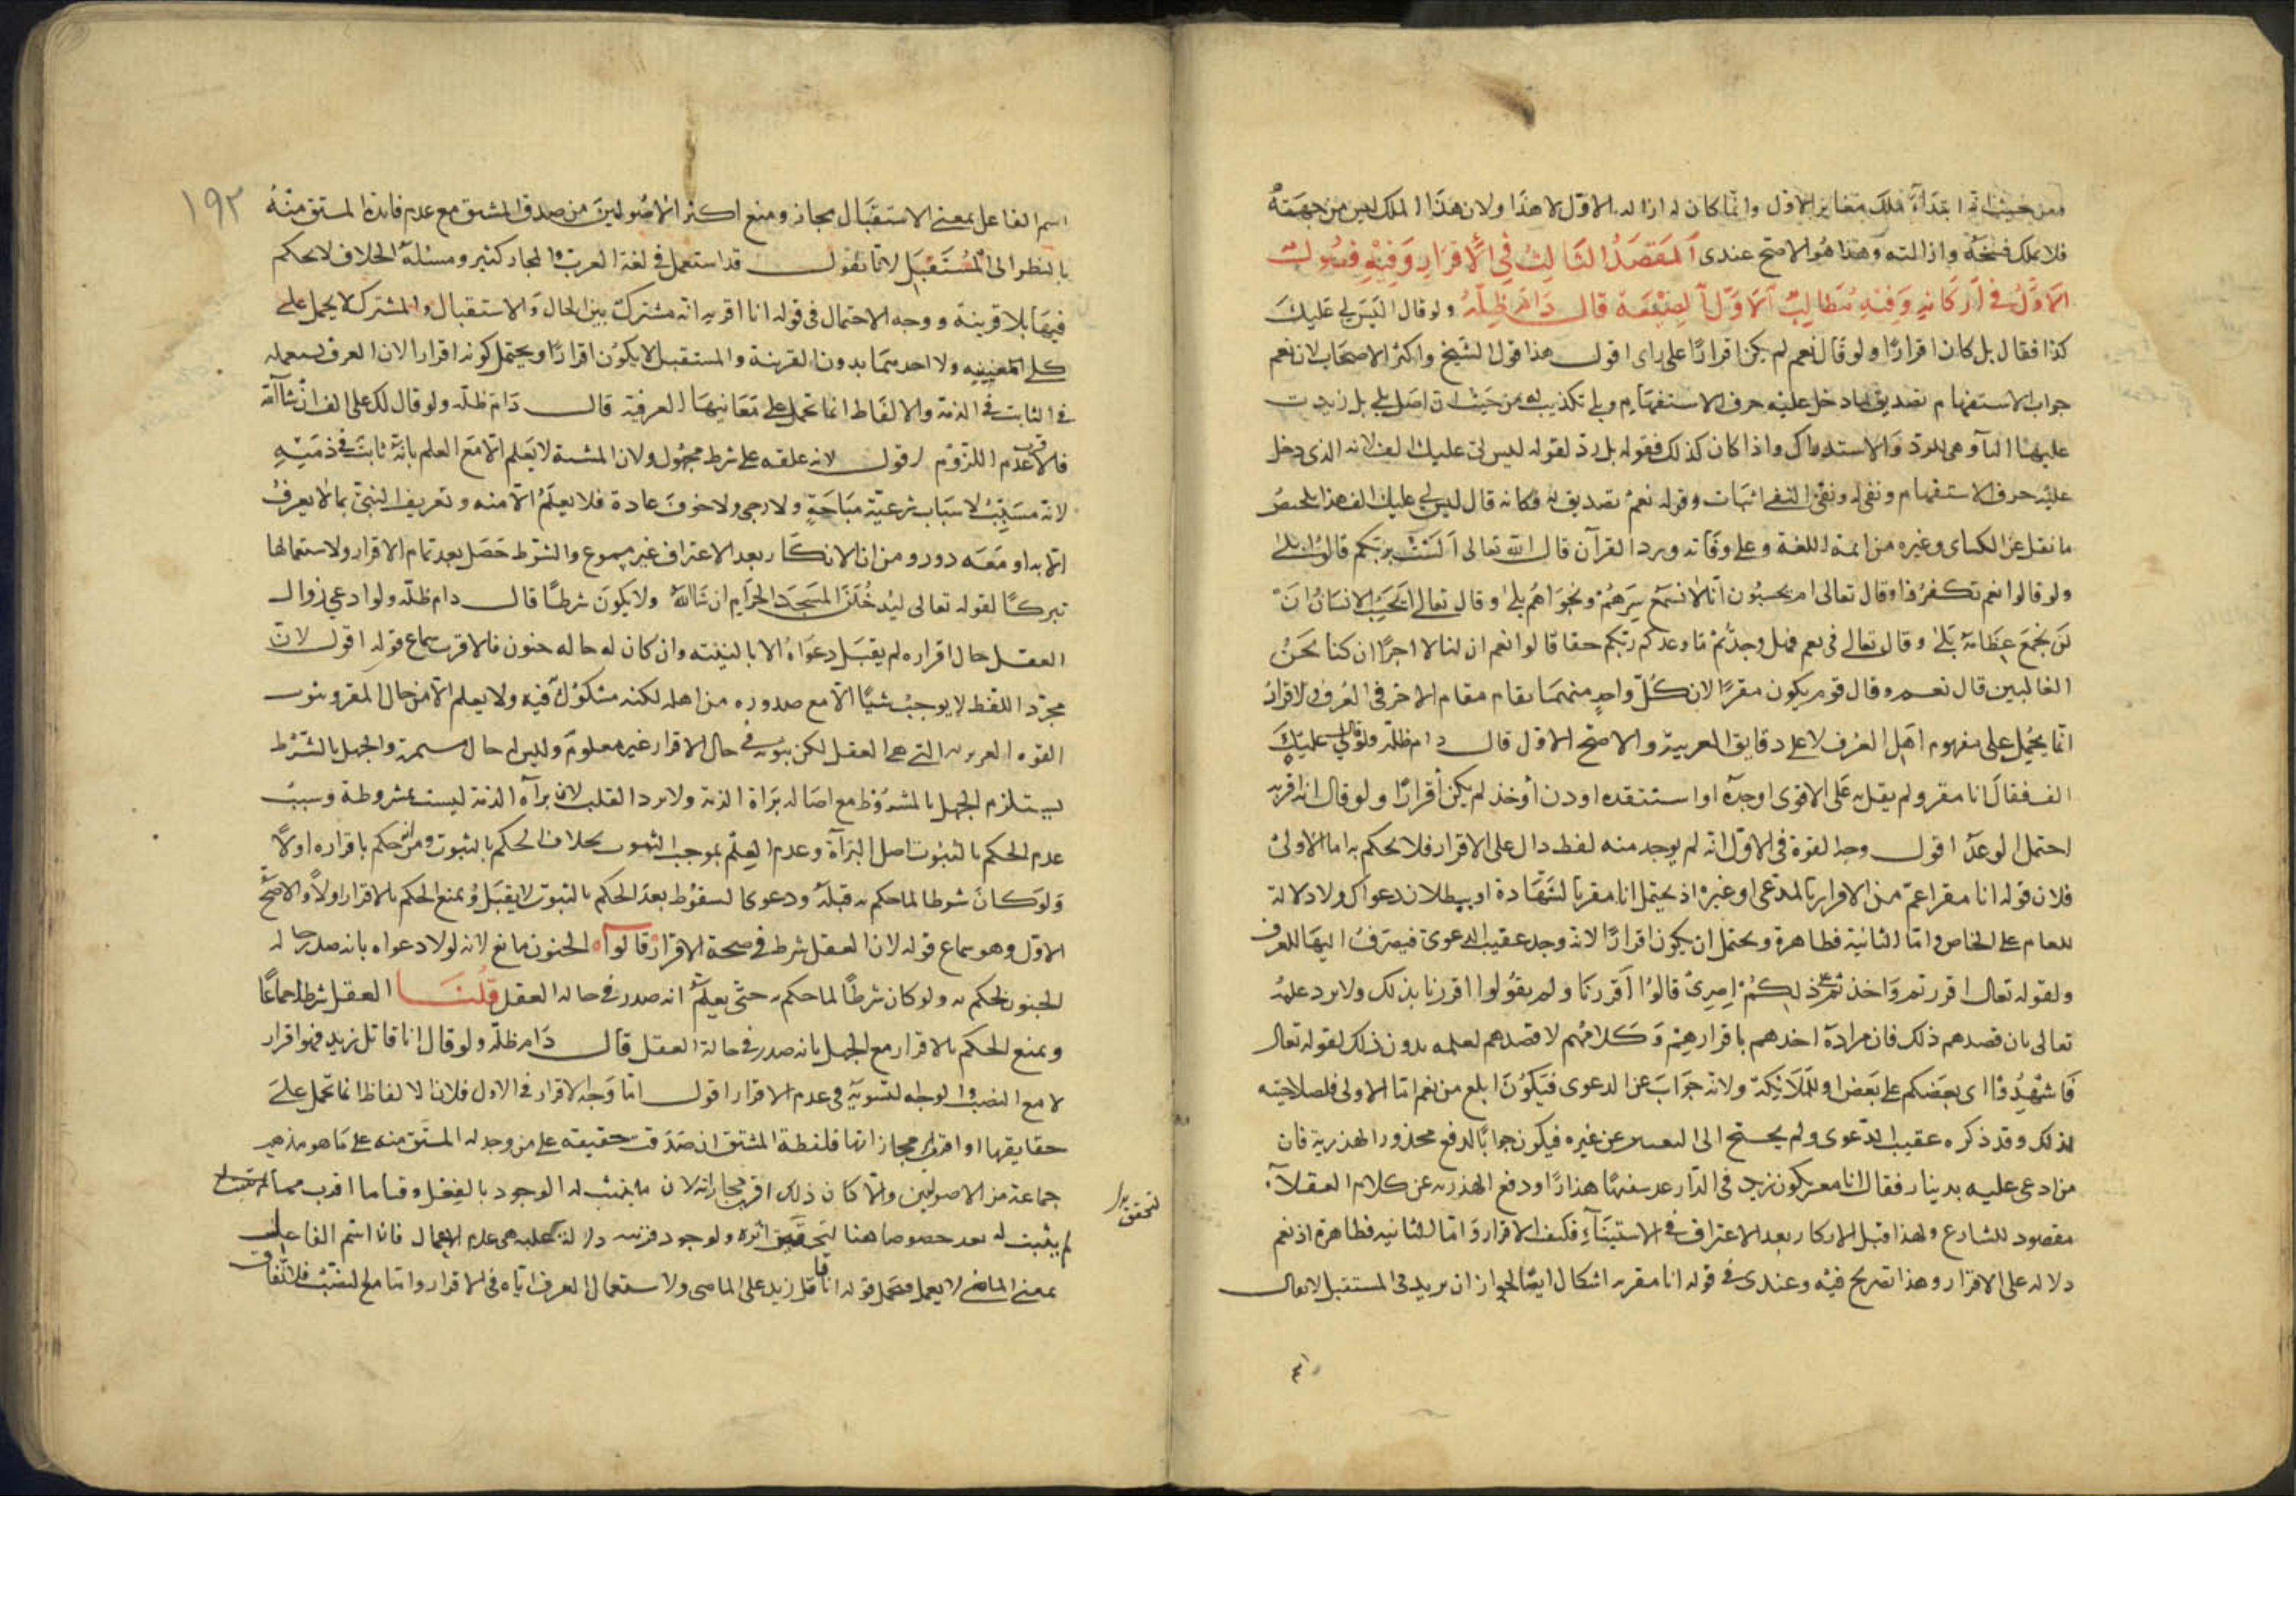 ومن حيث انه ابتدأ فلك مغاير الاول وانما كان له ازاله الاول لا هذا ولان هذا الملك ليس من جهته
فلا يملك فسخه وازالته وهذا هو الاصح عندى المقصد الثالث في الاقرار وفيه فصول
الاول في اركانه وفيه مطالب الاول الصيغة قال دام ظله ولو قال اليس لي عليك
كذا فقال بل كان اقرارا ولو قال نعم لم يكن اقرارا على راى اقول هذا قول الشيخ واكثر الاصحاب لان نعم
جواب الاستفهام تصديق لما دخل عليه حرف الاستفهام وبلى تكذيب له من حيث ان اصل بلى بل زيدت
عليها اليا وهى للرد والاستدراك واذا كان كذلك فقوله بل رد لقوله ليس لى عليك الف لانه الذى دخل
عليه حرف الاستفهام ونفى له ونفى النفى اثبات وقوله نعم تصديق له فكانه قال ليس لي عليك الف هذا تلخيص
ما نقل عن الكساى وغيره من ائمة اللغة وعلى وفاقه ورد القرآن قال الله تعالى الست بربكم قالوا بلى
ولو قالوا نعم لكفروا وقال تعالى ام يحسبون انا لا نسمع سرهم ونجواهم بلى وقال تعالى ايحسب الانسان ان
لن نجمع عظامه بلى وقال تعالى في نعم فهل وجدتم ما وعدكم ربكم حقا قالوا نعم ان لنا لاجرا ان كنا نحن
الغالبين قال نعم وقال قوم يكون مقرا لان كل واحد منهما يقام مقام الاخر في العرف والاقرار
انما يحمل على مفهوم اهل العرف لا على دقايق العربية والاصح الاول قال دام ظله ولو قال لي عليك
الف فقال انا مقر ولم يقل به على الاقوى او جده او استنقده او زن او خذ لم يكن اقرارا ولو قال انا اقر به
احتمل الوعد اقول وجه القوة في الاول انه لم يوجد منه لفظ دال على الاقرار فلا يحكم به اما الاولى
فلان قوله انا مقر اعم من الاقرار بالمدعى او غيره اذ يحتمل انا مقر بالشهادة او ببطلان دعواك ولا دلالة
للعام على الخاص واما الثانية فظاهرة ويحتمل ان يكون اقرارا لانه وجد عقيب الدعوى فيصرف اليها للعرف
ولقوله تعالى اقررتم واخذتم على ذلكم اصرى قالوا اقررنا ولم يقولوا اقررنا بذلك ولا يرد علمه
تعالى بان قصدهم ذلك فان مراده اخذهم باقرارهم وكلامهم لا قصدهم لعلمه بدون ذلك لقوله تعالى
فاشهدوا اى بعضكم على بعض او للملائكة ولانه جواب عن الدعوى فيكون ابلغ من نعم اما الاولى فلصلاحيته
لذلك وقد ذكره عقيب الدعوى ولم يحتج الى التفسير عن غيره فيكون جوابا لدفع محذور الهذرية فان
من ادعى عليه بدينار فقال انا مقر بكون زيد في الدار عد سفها هذارا ودفع الهذرية عن كلام العقلاء
مقصود للشارع ولهذا قبل الانكار بعد الاعتراف في الاستثناء فكيف الاقرار واما الثانية فظاهرة اذ نعم
دلاله على الاقرار وهذا تصريح فيه وعندى في قوله انا مقر به اشكال ايضا لجواز ان يريد في المستقبل لا يقال
١٩٢
اسم الفاعل بمعنى الاستقبال مجاز ومنع اكثر الاصوليين من صدق المشتق مع عدم فايدة المشتق منه
بالنظر الى المستقبل لانا نقول قد استعمل في لغة العرب والمجاز كثير ومسئلة الخلاف لا يحكم
فيها بلا قرينة ووجه الاحتمال في قوله انا اقر به انه مشترك بين الحال والاستقبال والمشترك لا يحمل على
كلى المعنيين ولا احدهما بدون القرينة والمستقبل لا يكون اقرارا ويحتمل كونه اقرارا لان العرف يستعمله
في الثابت في الذمة والالفاظ انما تحمل على معانيها العرفية قال دام ظله ولو قال لك على الف ان شاء الله
فالاقرب عدم اللزوم اقول لانه علقه على شرط مجهول ولان المشية لا يعلم الا مع العلم بانه ثابت في ذمته
لانه مسبب لاسباب شرعية مباحة ولا رجى ولا خوف عادة فلا يعلم الا منه وتعريف الشئ بما لا يعرف
الا به او معه دور ومن ان الانكار بعد الاعتراف غير مسموع والشرط حصل بعد تمام الاقرار ولاستعمالها
تبركا لقوله تعالى لتدخلن المسجد الحرام ان شاء الله ولا يكون شرطا قال دام ظله ولو ادعى زوال
العقل حال اقراره لم يقبل دعواه الا بالبينة وان كان له حاله جنون فالاقرب سماع قوله اقول لان
مجرد اللفظ لا يوجب شيئا الا مع صدوره من اهله لكنه مشكوك فيه ولا يعلم الا من حال المقر وثبوت
القوه التي هى العقل لكن ثبوته في حال الاقرار غير معلوم وليس له حال مستمرة والجهل بالشرط
يستلزم الجهل بالمشروط مع اصالة براة الذمة ولا يرد القلب لان برآة الذمة ليست مشروطة وسبب
عدم الحكم بالثبوت اصل البرآة وعدم العلم بموجب الثبوت بخلاف الحكم بالثبوت ومن انه حكم باقراره اولا
ولو كان شرطا لما حكم به قبله ودعوى السقوط بعد الحكم بالثبوت لا يقبل ونمنع الحكم بالاقرار اولا والاصح
الاول وهو سماع قوله لان العقل شرط في صحة الاقرار قالوا الجنون مانع لانه لولا دعواه بانه صدر حاله
الجنون لحكم به ولو كان شرطا لما حكم به حتى يعلم انه صدر في حاله العقل قلنا العقل شرط اجماعا
ونمنع الحكم بالاقرار مع الجهل بانه صدر في حالة العقل قال دام ظله ولو قال انا قاتل زيد فهو اقرار
لا مع النصب والوجه التسوية في عدم الاقرار اقول اما وجه الاقرار في الاول فلان الالفاظ انما تحمل على
حقايقها او اقرب مجازاتها فلفظة المشتق ان صدقت حقيقته على من وجد له المشتق منه على ما هو مذهب
جماعة من الاصوليين والا كان ذلك اقرب مجازاته لان ما يثبت له الوجود بالفعل وقتا ما اقرب مما
لم يثبت له بعد خصوصا هنا لتحقق اثره ولوجود قرينه دالة عليه هى عدم الاعمال فان اسم الفاعل
بمعنى الماضي لا يعمل فحمل قوله انا قاتل زيد على الماضى ولاستعمال العرف اياه في الاقرار واما مع النصب فلاتفاق